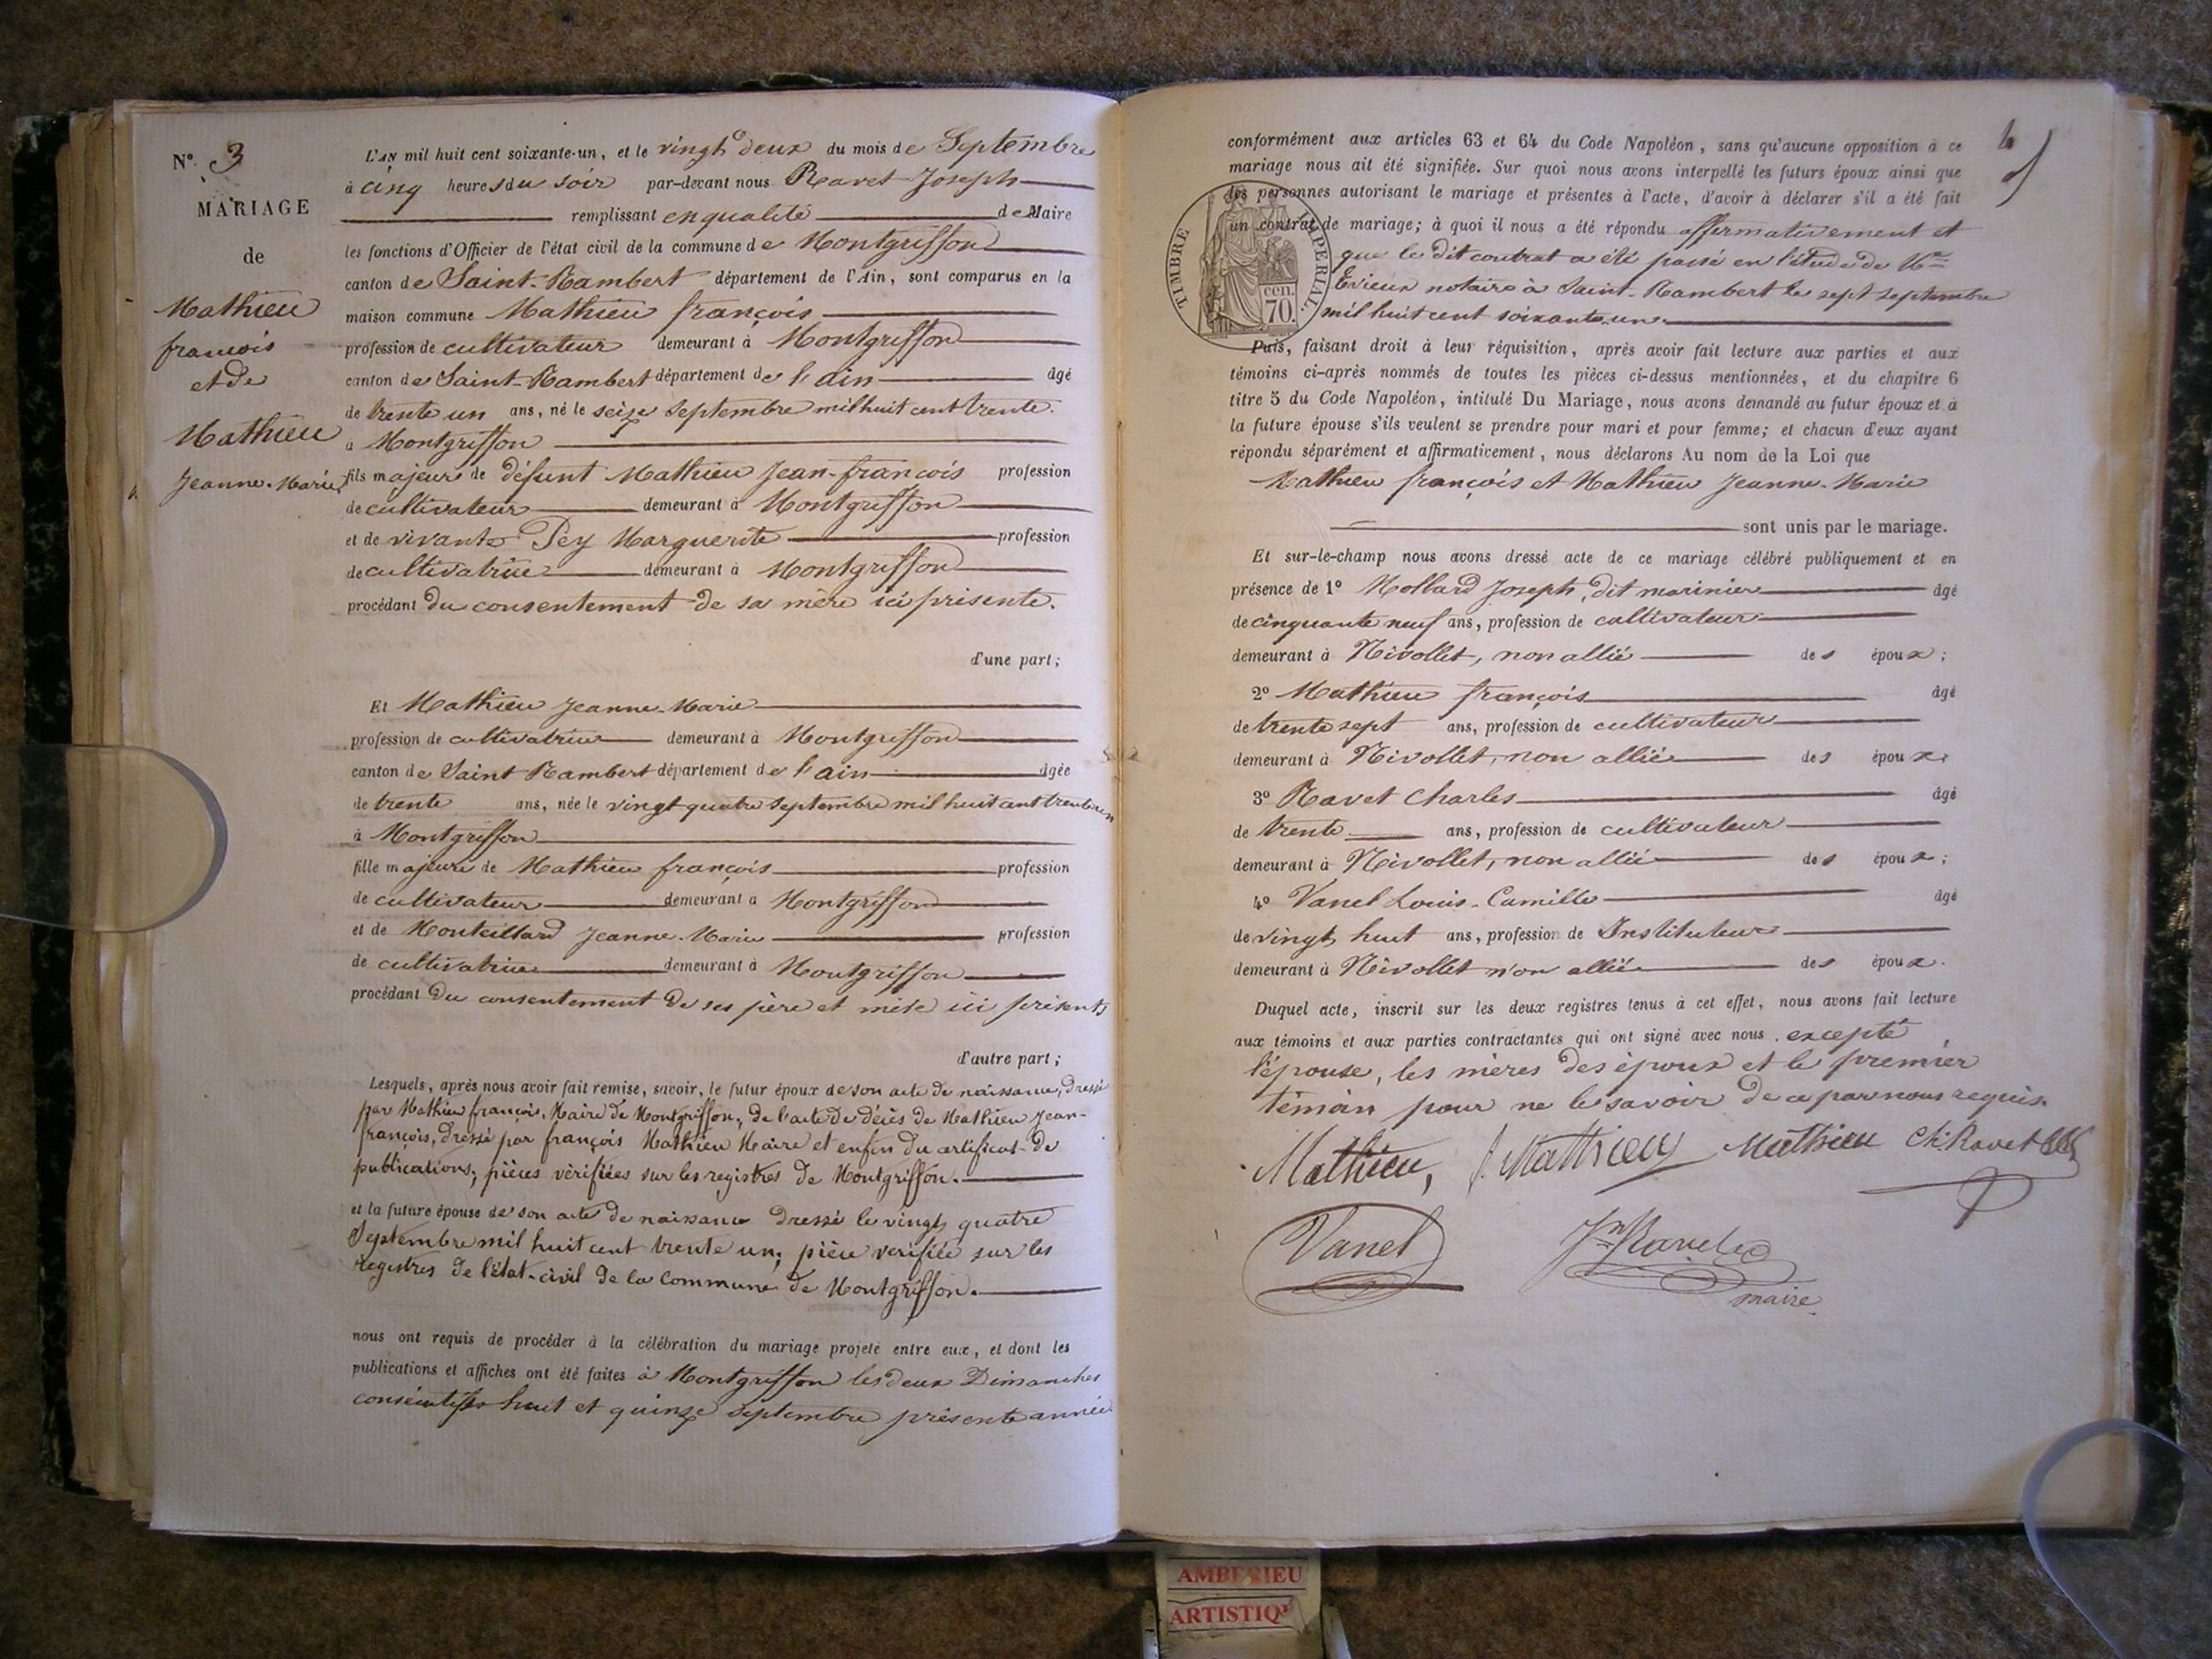 N.º 3
MARIAGE
de
Mathieu
françois
et de
Mathieu
Jeanne-Marie
L'AN mil huit cent soixante-un, et le vingt deux du mois de Septembre
à cinq heures du soir par-devant nous Ravet Joseph
remplissant en qualité de Maire
les fonctions d'Officier de l'état civil de la commune de Montgriffon
canton de Saint-Rambert département de l'Ain, sont comparus en la
maison commune Mathieu françois
profession de cultivateur demeurant à Montgriffon
canton de Saint-Rambert département de l'ain âgé
de trente un ans, né le seize Septembre mil huit cent trente.
à Montgriffon
fils majeur de défunt Mathieu Jean-françois profession
de cultivateur demeurant à Montgriffon
et de vivante Péy Marguerite profession
de cultivatrice demeurant à Montgriffon
procédant du consentement de sa mère ici présente.
d'une part;
Et Mathieu Jeanne-Marie
profession de cultivatrice demeurant à Montgriffon
canton de Saint Rambert département de l'ain âgée
de trente ans, née le vingt quatre septembre mil huit cent trente un
à Montgriffon
fille majeure de Mathieu françois profession
de cultivateur demeurant à Montgriffon
et de Monteillard Jeanne-Marie profession
de cultivatrice demeurant à Montgriffon
procédant du consentement de ses père et mère ici présents
d'autre part;
Lesquels, après nous avoir fait remise, savoir, le futur époux de son acte de naissance, dressé
par Mathieu françois, Maire de Montgriffon, de l'acte de décès de Mathieu Jean-
françois, dressé par françois Mathieu Maire et enfin du certificat de
publications, pièces vérifiées sur les registres de Montgriffon.
et la future épouse de son acte de naissance dressé le vingt quatre
Septembre mil huit cent trente un, pièce verifiée sur les
registres de l'état-civil de la Commune de Montgriffon.
nous ont requis de procéder à la célébration du mariage projeté entre eux, et dont les
publications et affiches ont été faites à Montgriffon les deux Dimanches
consécutifs huit et quinze septembre présente année
4
conformément aux articles 63 et 64 du Code Napoléon, sans qu'aucune opposition à ce
mariage nous ait été signifiée. Sur quoi nous avons interpellé les futurs époux ainsi que
les personnes autorisant le mariage et présentes à l'acte, d'avoir à déclarer s'il a été fait
un contrat de mariage; à quoi il nous a été répondu affirmativement et
que le dit contrat a été passé en l'étude de Me
Evieux notaire à Saint-Rambert le sept septembre
mil huit cent soixante un.
TIMBRE IMPERIAL
cen.
70.
Puis, faisant droit à leur réquisition, après avoir fait lecture aux parties et aux
témoins ci-après nommés de toutes les pièces ci-dessus mentionnées, et du chapitre 6
titre 5 du Code Napoléon, intitulé Du Mariage, nous avons demandé au futur époux et à
la future épouse s'ils veulent se prendre pour mari et pour femme; et chacun d'eux ayant
répondu séparément et affirmativement, nous déclarons Au nom de la Loi que
Mathieu françois et Mathieu Jeanne-Marie
sont unis par le mariage.
Et sur-le-champ nous avons dressé acte de ce mariage célébré publiquement et en
présence de 1º Mollard Joseph, dit marinier âgé
de cinquante neuf ans, profession de cultivateur
demeurant à Nivollet, non allié des époux;
2º Mathieu françois âgé
de trente sept ans, profession de cultivateur
demeurant à Nivollet, non allié des époux
3º Ravet Charles âgé
de trente ans, profession de cultivateur
demeurant à Nivollet, non allié des époux;
4º Vanel Louis-Camille âgé
de vingt huit ans, profession de Instituteur
demeurant à Nivollet non allié des époux.
Duquel acte, inscrit sur les deux registres tenus à cet effet, nous avons fait lecture
aux témoins et aux parties contractantes qui ont signé avec nous, excepté
l'épouse, les mères des époux et le premier
témoin pour ne le savoir de ce par nous requis.
Mathieu, f. Mathieu Mathieu Ch. Ravet
Vanel Jh Ravet
maire
AMBERIEU
ARTISTIQ